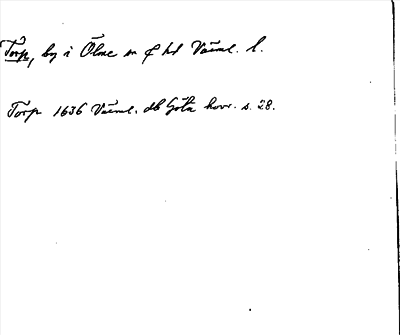 Torp, by i Ölme sn o hd Värml. l.
Torp 1636 Värml. db Göta hovr. s. 28.